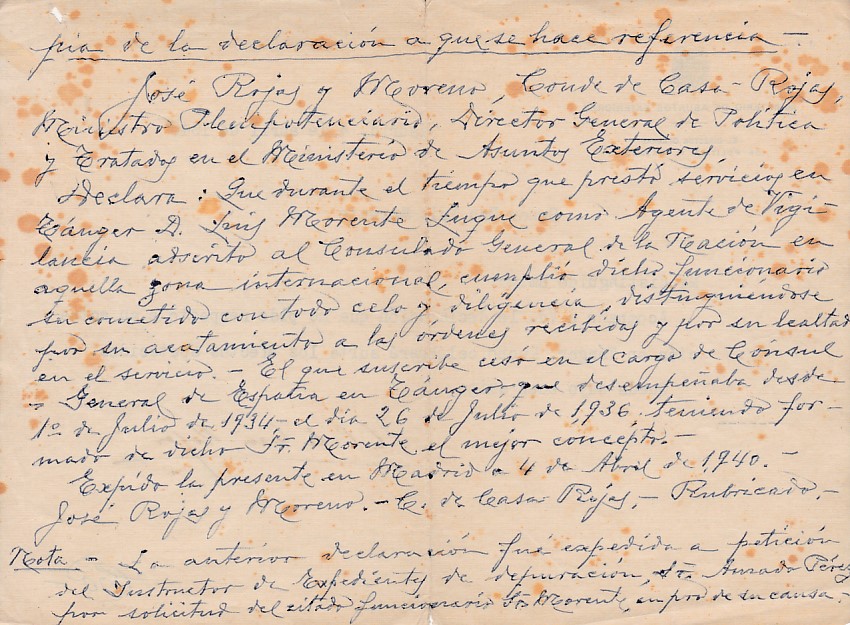 pia de la declaración a que se hace referencia –
José Rojas y Moreno, Conde de Casa-Rojas,
Ministro Plenipotenciario, Director General de Política
y Tratados en el Ministerio de Asuntos Exteriores
Declara: Que durante el tiempo que prestó servicios en
Tánger D. Luis Morente Luque como Agente de Vigi-
lancia adscrito al Consulado General de la Nación en
aquella zona internacional, cumplió dicho funcionario
su cometido con todo celo y diligencia, distinguiéndose
por su acatamiento a las órdenes recibidas y por su lealtad
en el servicio. – El que suscribe cesó en el cargo de Cónsul
- General de España en Tánger, que desempeñaba desde
1º de Julio de 1934 – el día 26 de Julio de 1936 teniendo for-
mado de dicho Sr. Morente el mejor concepto. –
Expido la presente en Madrid a 4 de Abril de 1940. –
José Rojas y Moreno. – C. de Casa Rojas, – Rubricado. –
Nota – La anterior declaración fué expedida a petición
del Instructor de Expedientes de depuración, Sr. Amado Pérez
por solicitud del citado funcionario Sr. Morente, en pro de su causa. –